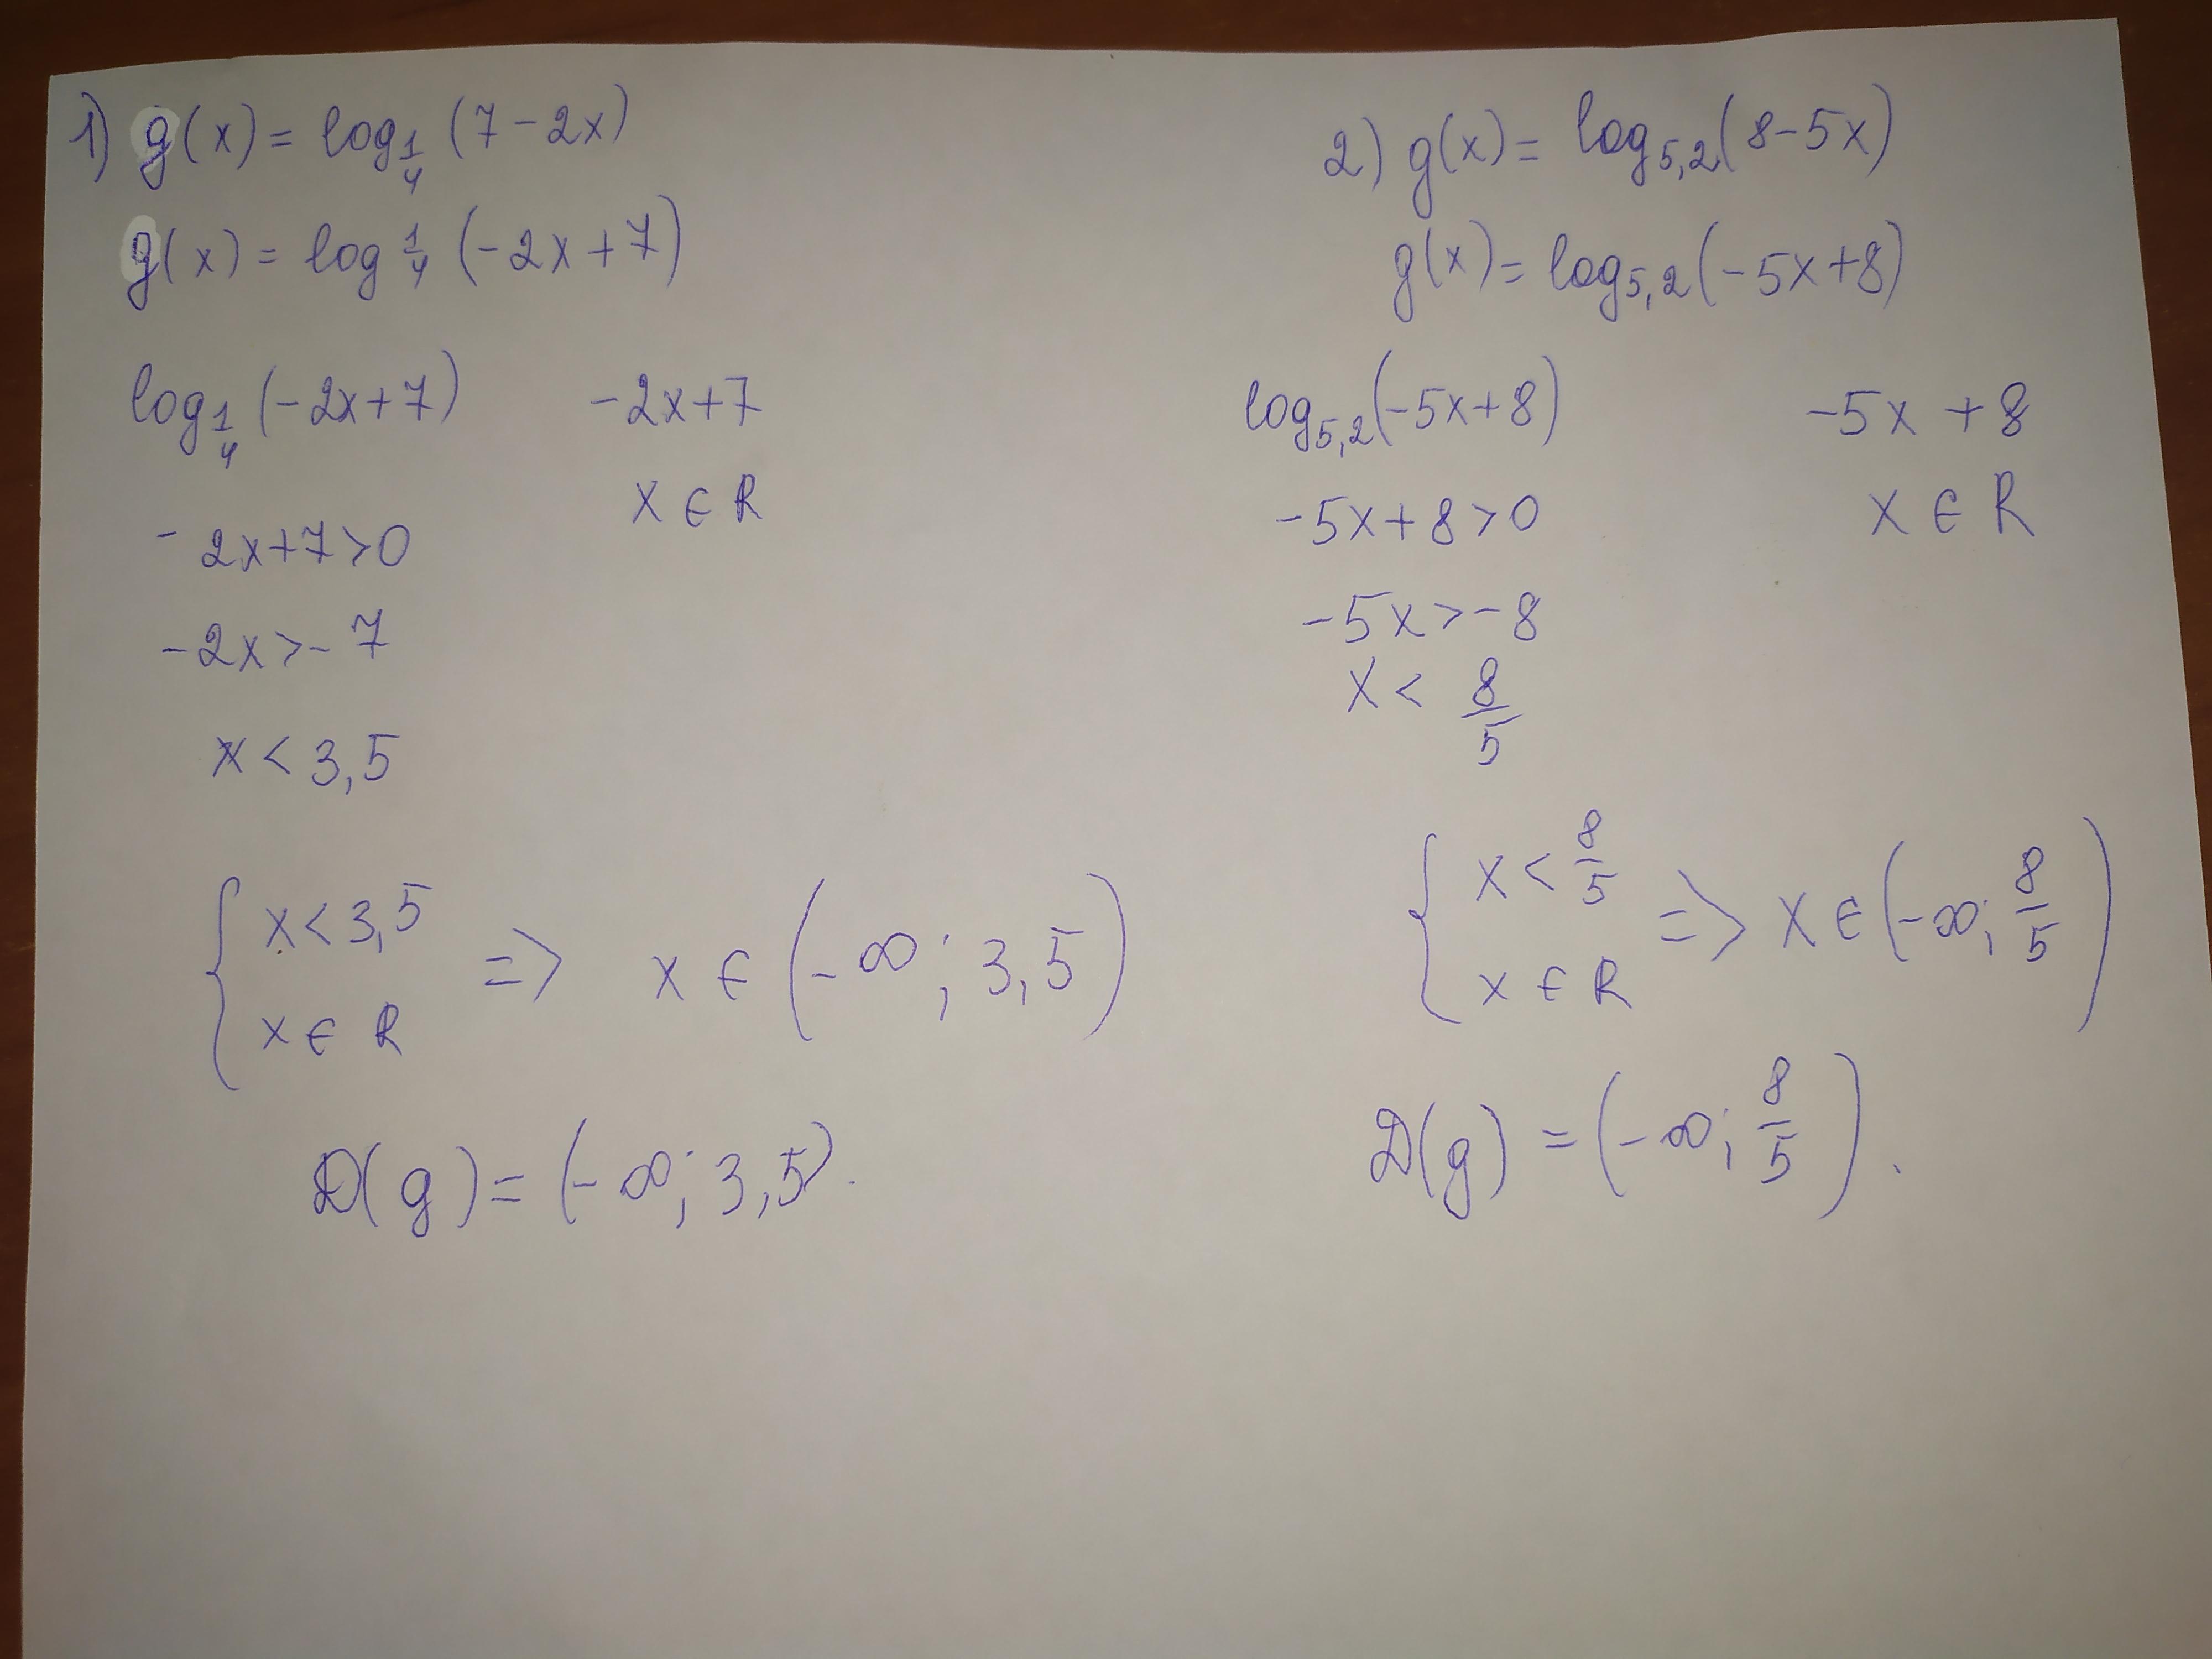 1) g(x) = log_{1/4} (7 - 2x)
g(x) = log 1/4 (-2x + 7)
log_{1/4} (-2x+7)   -2x+7
x ∈ R
-2x+7>0
-2x>-7
x < 3,5
{ x < 3,5
x ∈ R => x ∈ (-∞; 3,5)
D(g) = (-∞; 3,5).
2) g(x) = log_{5,2} (8-5x)
g(x) = log_{5,2} (-5x+8)
log_{5,2} (-5x+8)   -5x + 8
-5x+8>0   x ∈ R
-5x>-8
x < 8/5
{ x < 8/5
x ∈ R => x ∈ (-∞; 8/5)
D(g) = (-∞; 8/5).